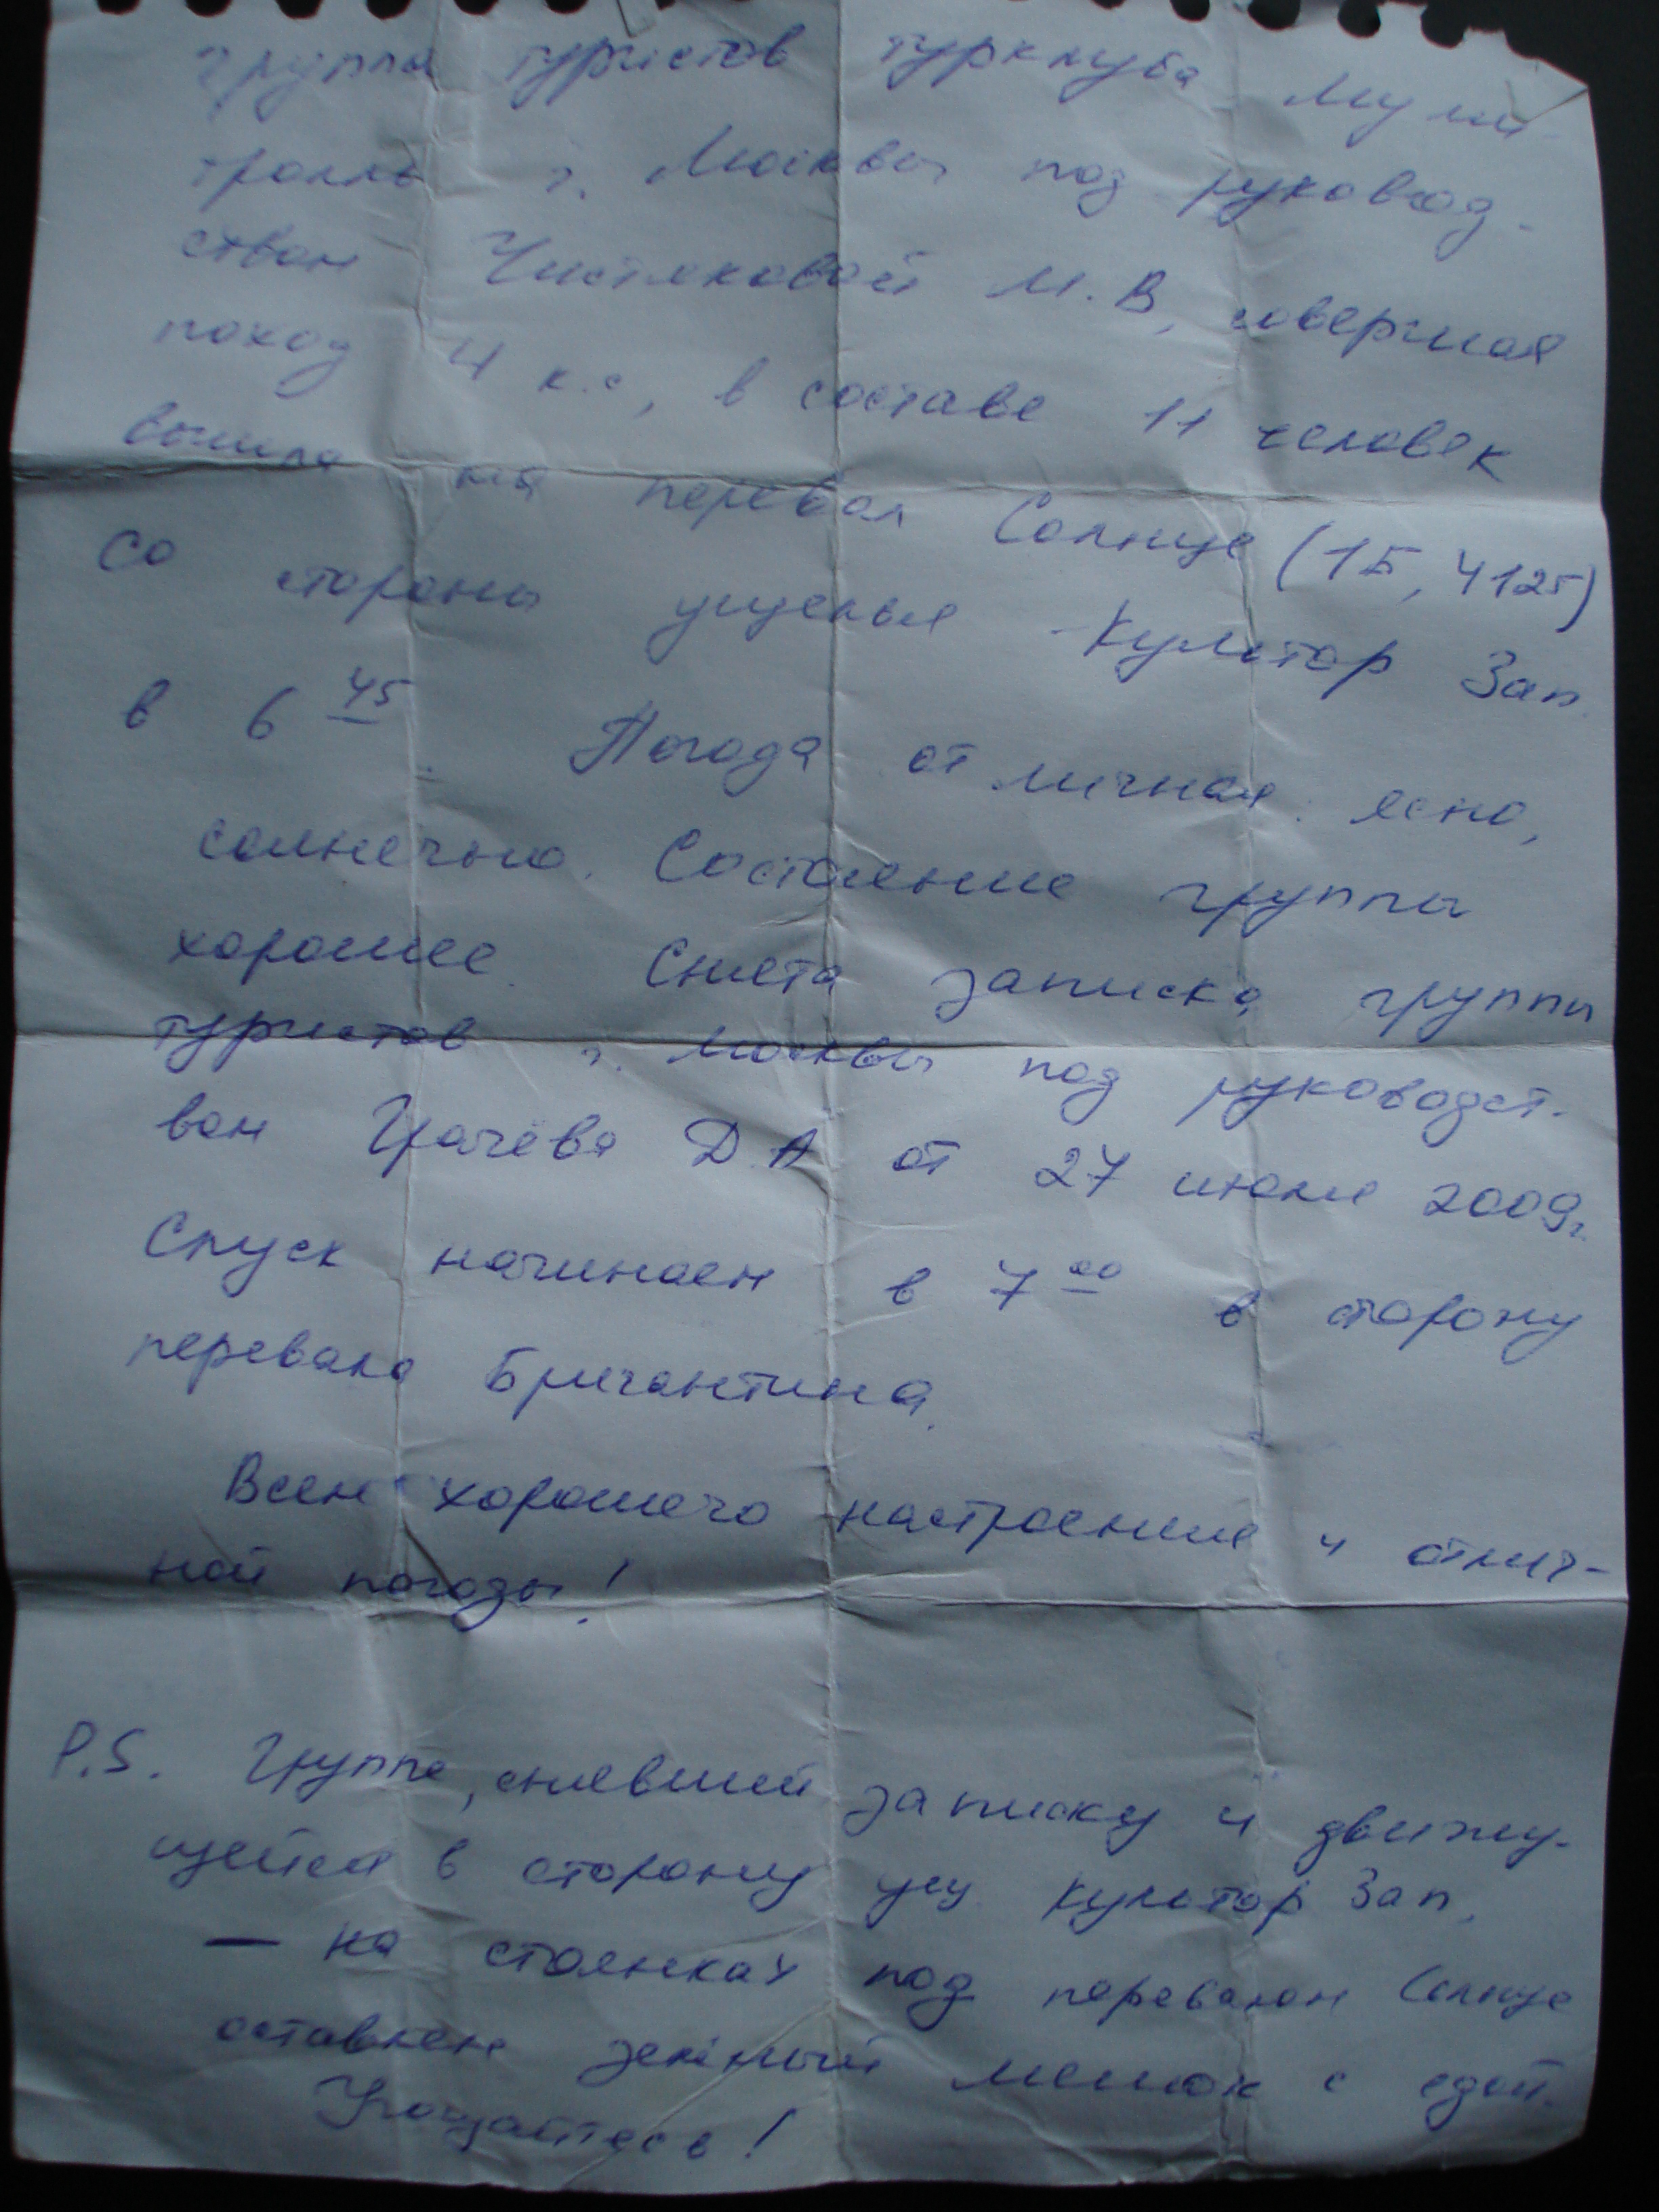 группа туристов турклуба Муми-
тролль г. Москвы под руковод-
ством Чистяковой М.В, совершая
поход 4 к.с, в составе 11 человек
вышла на перевал Солнце (1Б, 4125)
со стороны ущелья Кульстор Зап.
в 6 45. Погода отличная: ясно,
солнечно. Состояние группы
хорошее. Снята записка группы
туристов г. Москвы под руководст-
вом Грачёва Д А от 27 июля 2009г.
Спуск начинаем в 7 00 в сторону
перевала Бригантина.
Всем хорошего настроения и отлич-
ной погоды!
P.S. Группе, снявшей записку и движу-
щейся в сторону ущ. Кульстор Зап,
— на стоянках под перевалом Солнце
оставлен зелёный мешок с едой.
Угощайтесь!